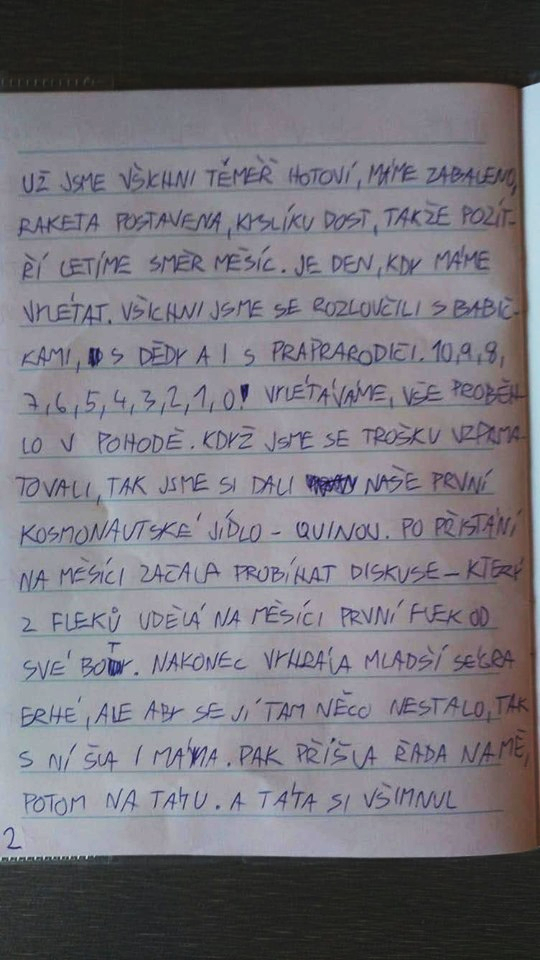 UŽ JSME VŠICHNI TÉMĚŘ HOTOVÍ, MÁME ZABALENO,
RAKETA POSTAVENA, KYSLÍKU DOST, TAKŽE POZÍT-
ŘÍ LETÍME SMĚR MĚSÍC. JE DEN, KDY MÁME
VYLÉTAT. VŠICHNI JSME SE ROZLOUČILI S BABIČ-
KAMI, S DĚDY A I S PRAPRARODIČI. 10, 9, 8,
7, 6, 5, 4, 3, 2, 1, 0! VYLÉTÁVÁME, VŠE PROBĚH-
LO V POHODĚ. KDYŽ JSME SE TROŠKU VZPAMA-
TOVALI, TAK JSME SI DALI NAŠE PRVNÍ
KOSMONAUTSKÉ JÍDLO - QUINOU. PO PŘISTÁNÍ
NA MĚSÍCI ZAČALA PROBÍHAT DISKUSE - KTERÝ
Z FLEKŮ UDĚLÁ NA MĚSÍCI PRVNÍ FLEK OD
SVÉ BOTY. NAKONEC VYHRÁLA MLADŠÍ SÉGRA
ERHÉ, ALE ABY SE JÍ TAM NĚCO NESTALO, TAK
S NÍ ŠLA I MÁMA. PAK PŘIŠLA ŘADA NA MĚ,
POTOM NA TÁTU. A TÁTA SI VŠIMNUL
2